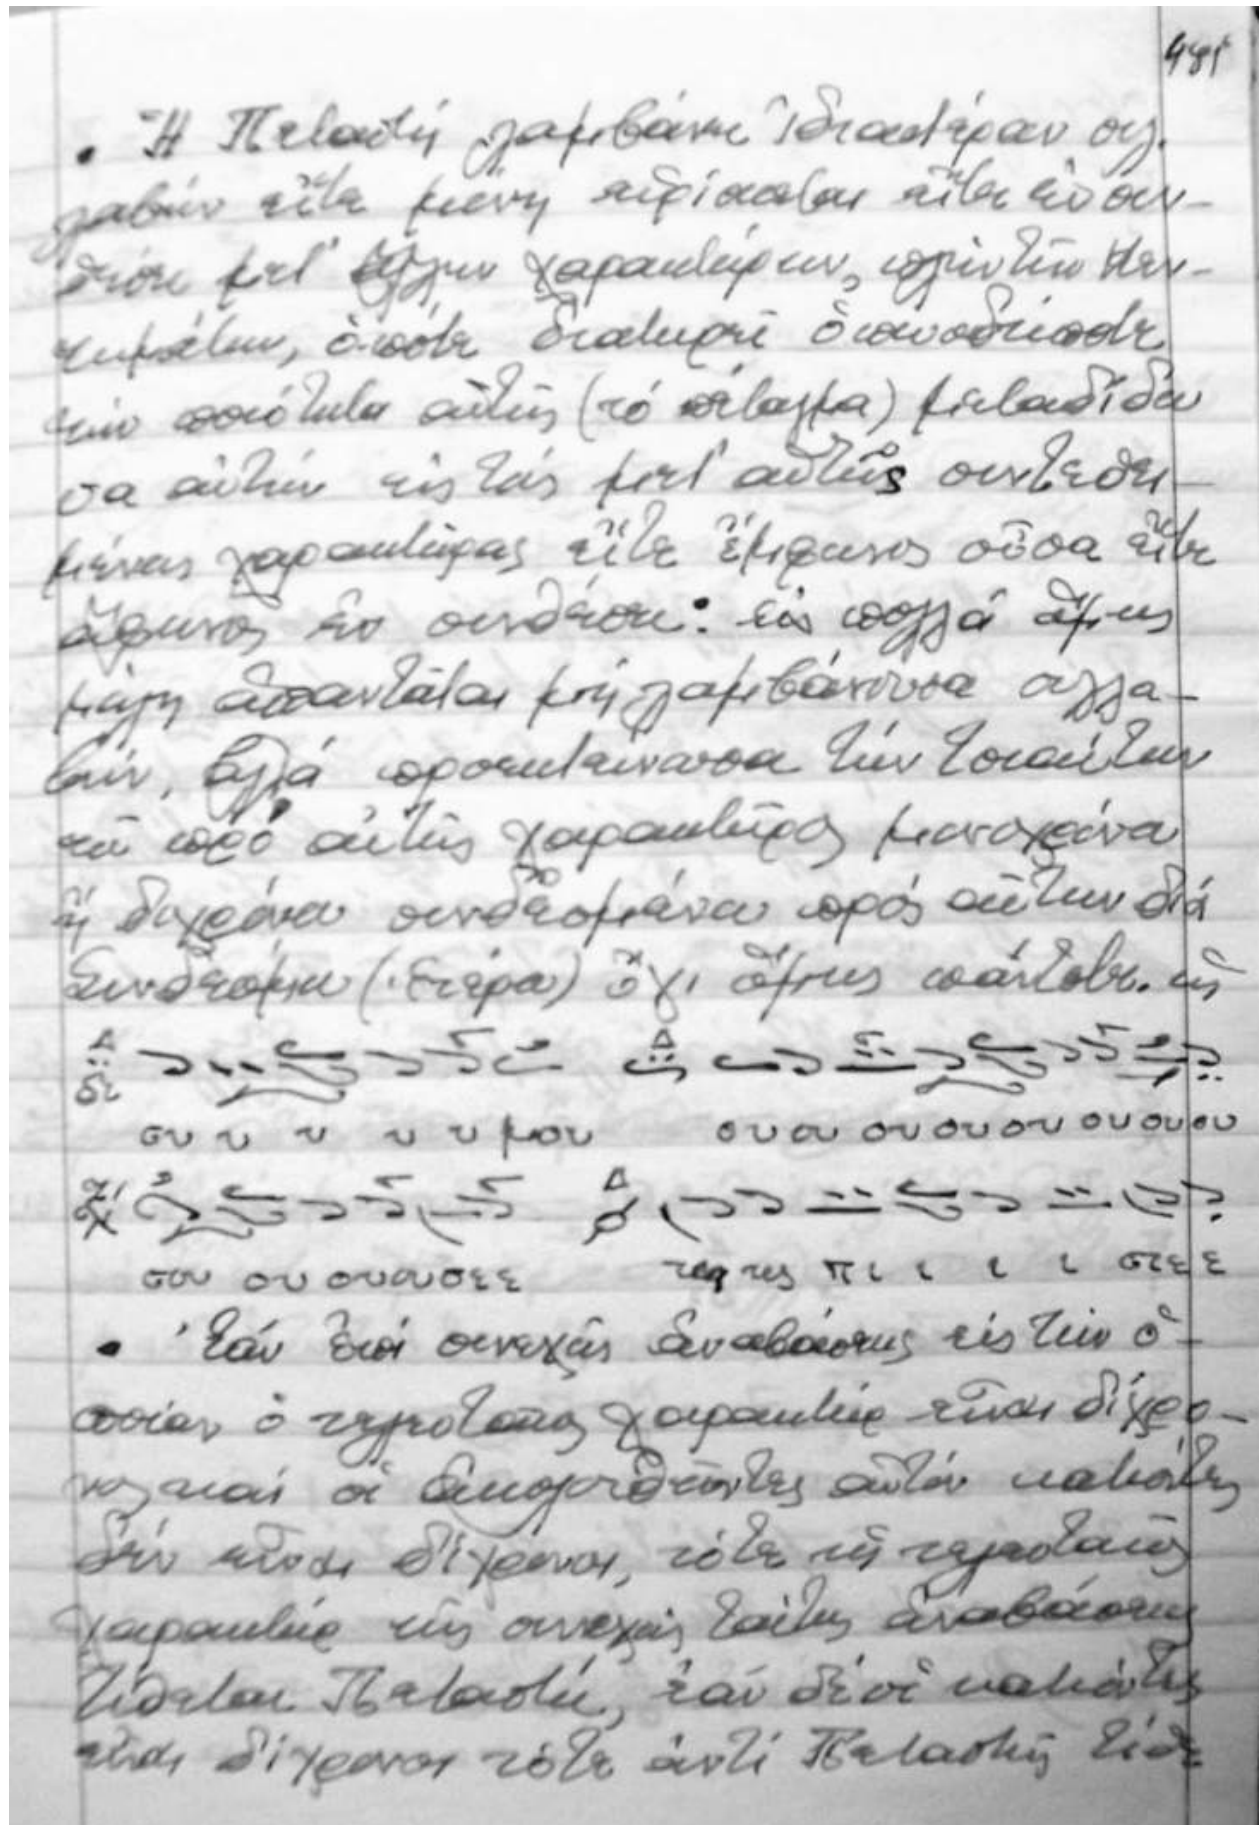 • Ἡ Πεταστή λαμβάνει ἰδιαιτέραν συλ-
λαβήν εἴτε μόνη εὑρίσκεται εἴτε ἐν συν-
θέσει μετ' ἄλλων χαρακτήρων, πλήν τῶν Κεν-
τημάτων, ὁπότε διατηρεῖ ὁπωσδήποτε
τήν ποιότητα αὐτῆς (τό πέταγμα) μεταδίδου
σα αὐτήν εἰς τούς μετ' αὐτῆς συντεθει-
μένους χαρακτῆρας εἴτε ἔμφωνος οὖσα εἴτε
ἄφωνος ἐν συνθέσει: εἰς πολλά ὅμως
μέλη ἀπαντᾶται μή λαμβάνουσα συλλα-
βήν, ἀλλά προεκτείνουσα τήν τοιαύτην
τοῦ πρό αὐτῆς χαρακτῆρος μονοχρόνου
ἤ διχρόνου συνδεομένου πρός αὐτήν διά
Συνδέσμου (Ἑτέρου) ὄχι ὅμως πάντοτε.
Δ Δ
δι
συ υ υ υ υ μου ου ου ου ου ου ου ου ου
Δ
σου ου ου ου σε ε της πι ι ι ι στε ε
• Ἐάν ἐπί συνεχοῦς ἀναβάσεως εἰς τήν ὁ-
ποίαν ὁ τελευταῖος χαρακτήρ εἶναι δίχρο-
νος καί οἱ ἀκολουθοῦντες αὐτόν κατιόντες
δέν εἶναι δίχρονοι, τότε τελευταῖος
χαρακτήρ τῆς συνεχοῦς ταύτης ἀναβάσεως
τίθεται Πεταστή, ἐάν δέ οἱ κατιόντες
εἶναι δίχρονοι τότε ἀντί Πεταστῆς τίθε